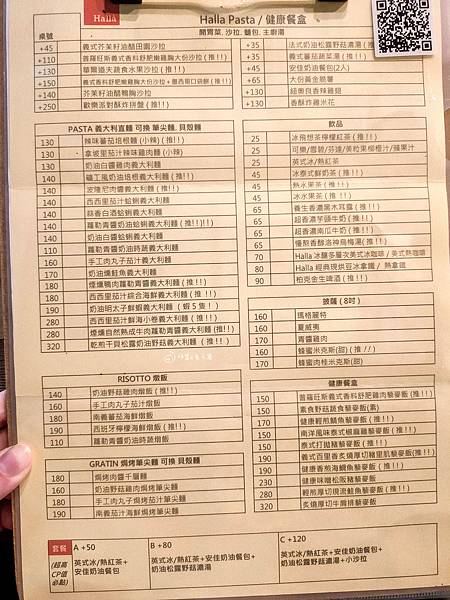 Hallà
Halla Pasta / 健康餐盒
開胃菜, 沙拉, 麵包, 主廚湯
桌號
+45 義式芥茉籽油醋田園沙拉
+110
+130 華爾道夫蔬食水果沙拉(推!!)
+150
+140 芥茉籽油醋鴨胸沙拉
+250 歡樂派對酥炸拼盤 (推!!)
+35 法式奶油松露野菇濃湯(推!!)
+35 義式蕃茄蔬菜湯(推!!)
+45 安佳奶油餐包(2入)
+65 大份黃金脆薯
+130 紐奧良香辣雞翅
+130 香酥炸雞米花
PASTA 義大利直麵 可換 筆尖麵. 貝殼麵
130 辣味蕃茄培根麵 (小辣) (推!!)
130 拿坡里茄汁辣味雞肉麵 (小辣)
130 奶油白醬雞肉義大利麵
140 礦工風奶油培根麵(推!!)
140 波隆尼肉醬義大利麵 (推!!)
140 西西里茄汁蛤蜊義大利麵
140 蒜香白酒蛤蜊義大利麵
140 蘿勒青醬奶油蛤蜊義大利麵 (推!!)!!)
140 奶油白醬蛤蜊義大利麵
110 蘿勒青醬奶油時蔬義大利麵
160 手工肉丸子茄汁義大利麵
170 奶油燻鮭魚義大利麵
180 煙燻鴨肉蘿勒青醬義大利麵 (推!!)
180 西西里茄汁綜合海鮮義大利麵 (推!!)
190 奶油明太子鮮蝦義大利麵 ( 蝦 5 隻 ! )
190 西西里茄汁鮮海小卷義大利麵 (推!!)
280 煙燻自然熟成牛肉蘿勒青醬義大利麵 (推!!)
320 乾煎干貝松露奶油野菇義大利麵 (推!!)
飲品
25 冰飛想茶檸檬紅茶 (推!!)
25 可樂/雪碧/芬達/美粒果柳橙汁/蘋果汁
25 英式冰/熱紅茶
45 冰泰式鮮奶茶 (推!!)
45 熱水果茶 (推!!)
45 冰水果茶 (推 !!)
65 養生香濃黑木耳露 (推!!)
65 超香濃芋頭牛奶 (推!!)
65 超香濃南瓜牛奶 (推!!)
65 慢熬香醇洛神烏梅湯(推!!)
70 Halla 冰釀多層次美式冰咖啡 / 美式熱咖啡
80 Halla 經典現烘豆冰拿鐵 / 熱拿鐵
90 柏克金生啤酒 (推!!)
披薩 (8吋)
160 瑪格麗特
160 夏威夷
170 青醬雞肉
160 蜂蜜米克斯(甜) (推 !!)
170 蜂蜜肉桂米克斯(甜)
RISOTTO 燉飯
140 奶油野菇雞肉燉飯 (推!!)
160 手工肉丸子茄汁燉飯
180 南義蕃茄海鮮燉飯 (推!!)
190 西班牙檸檬海鮮燉飯 (推!!)
110 蘿勒青醬奶油時蔬燉飯
健康餐盒
150 首羅旺斯義式香料舒肥雞肉藜麥飯 (推!!)
150 素食野菇蔬食藜麥飯(素)
170 健康輕煎鯛魚藜麥飯 (推!!)
150 南洋風味泰式椒麻雞藜麥飯 (推!!)
150 泰式打拋豬藜麥飯(推!!)
170 義式百里香炙燒厚切豬里肌藜麥飯 (推!!)
190 健康香煎海鱺魚藜麥飯 (推!!)
230 健康味噌松阪豬藜麥飯
280 輕煎厚切現流鮭魚藜麥飯 (推!!)
320 炙燒厚切牛肩排藜麥飯 (推!!)
GRATIN 焗烤筆尖麵 可換 貝殼麵
180 焗烤肉醬千層麵
160 奶油野菇雞肉焗烤筆尖麵 (推!!)
180 手工肉丸子焗烤茄汁筆尖麵
190 南義茄汁海鮮焗烤筆尖麵 (推!!)
套餐
(超高CP值必點)
A +50
英式冰/熱紅茶+
安佳奶油餐包
B + 80
英式冰/熱紅茶+安佳奶油餐包+
奶油松露野菇濃湯
C + 120
英式冰/熱紅茶+安佳奶油餐包+
奶油松露野菇濃湯+小沙拉